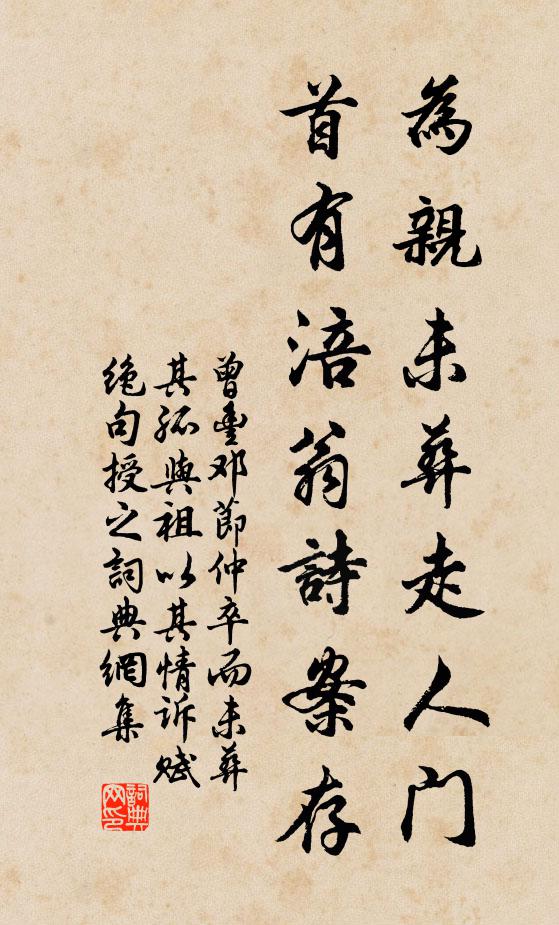 為親未葬走人門
首有涪翁詩案存
曾豊邓節仲卒而未葬
其孤與祖以其情诉赋
绝句授之詞典網集
詞典
网印